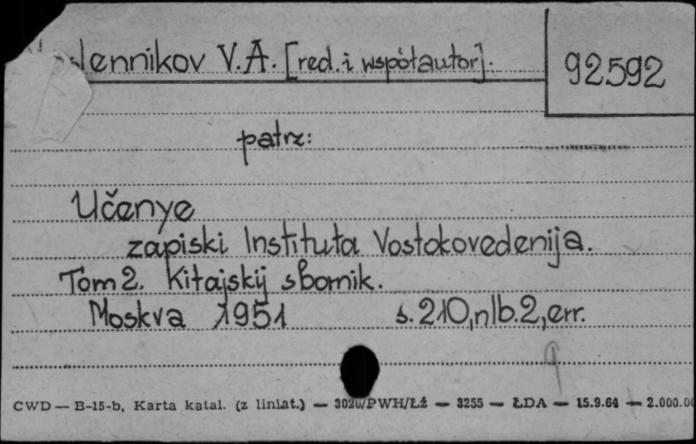 lennikov V.A. [red. i współautor].
92592
patrz:
Učenye
zapiski Instituta Vostokovedenija.
Tom 2. Kitajskij sbornik.
Moskva 1951 s. 210, nlb. 2, err.
CWD — B-15-b, Karta katal. (z liniat.) — 3020/PWH/Łź — 3255 — ŁDA — 15.9.64 — 2.000.00